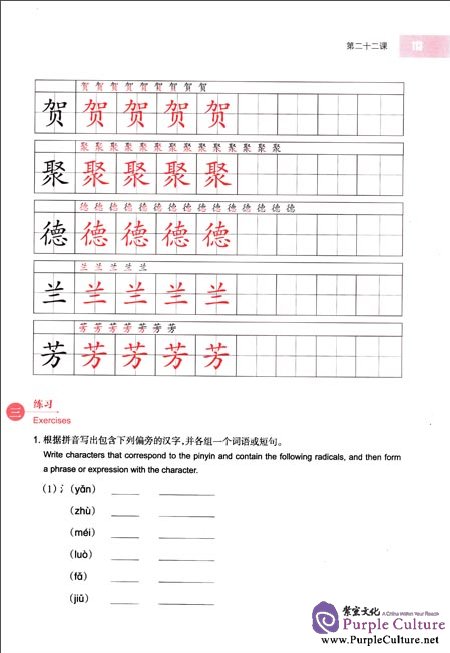 第二十二课
贺 贺 贺 贺 贺 贺 贺 贺 贺
贺 贺 贺 贺 贺
聚 聚 聚 聚 聚 聚 聚 聚 聚 聚 聚 聚 聚 聚
聚 聚 聚 聚 聚
德 德 德 德 德 德 德 德 德 德 德 德 德 德 德
德 德 德 德 德
兰 兰 兰 兰 兰
兰 兰 兰 兰 兰
芳 芳 芳 芳 芳 芳 芳
芳 芳 芳 芳 芳
三 练习
Exercises
1. 根据拼音写出包含下列偏旁的汉字,并各组一个词语或短句。
Write characters that correspond to the pinyin and contain the following radicals, and then form
a phrase or expression with the character.
(1) 氵 (yān)
(zhù)
(méi)
(luò)
(fǎ)
(jiǔ)
紫室文化 A China Within Your Reach
Purple Culture
www.PurpleCulture.net